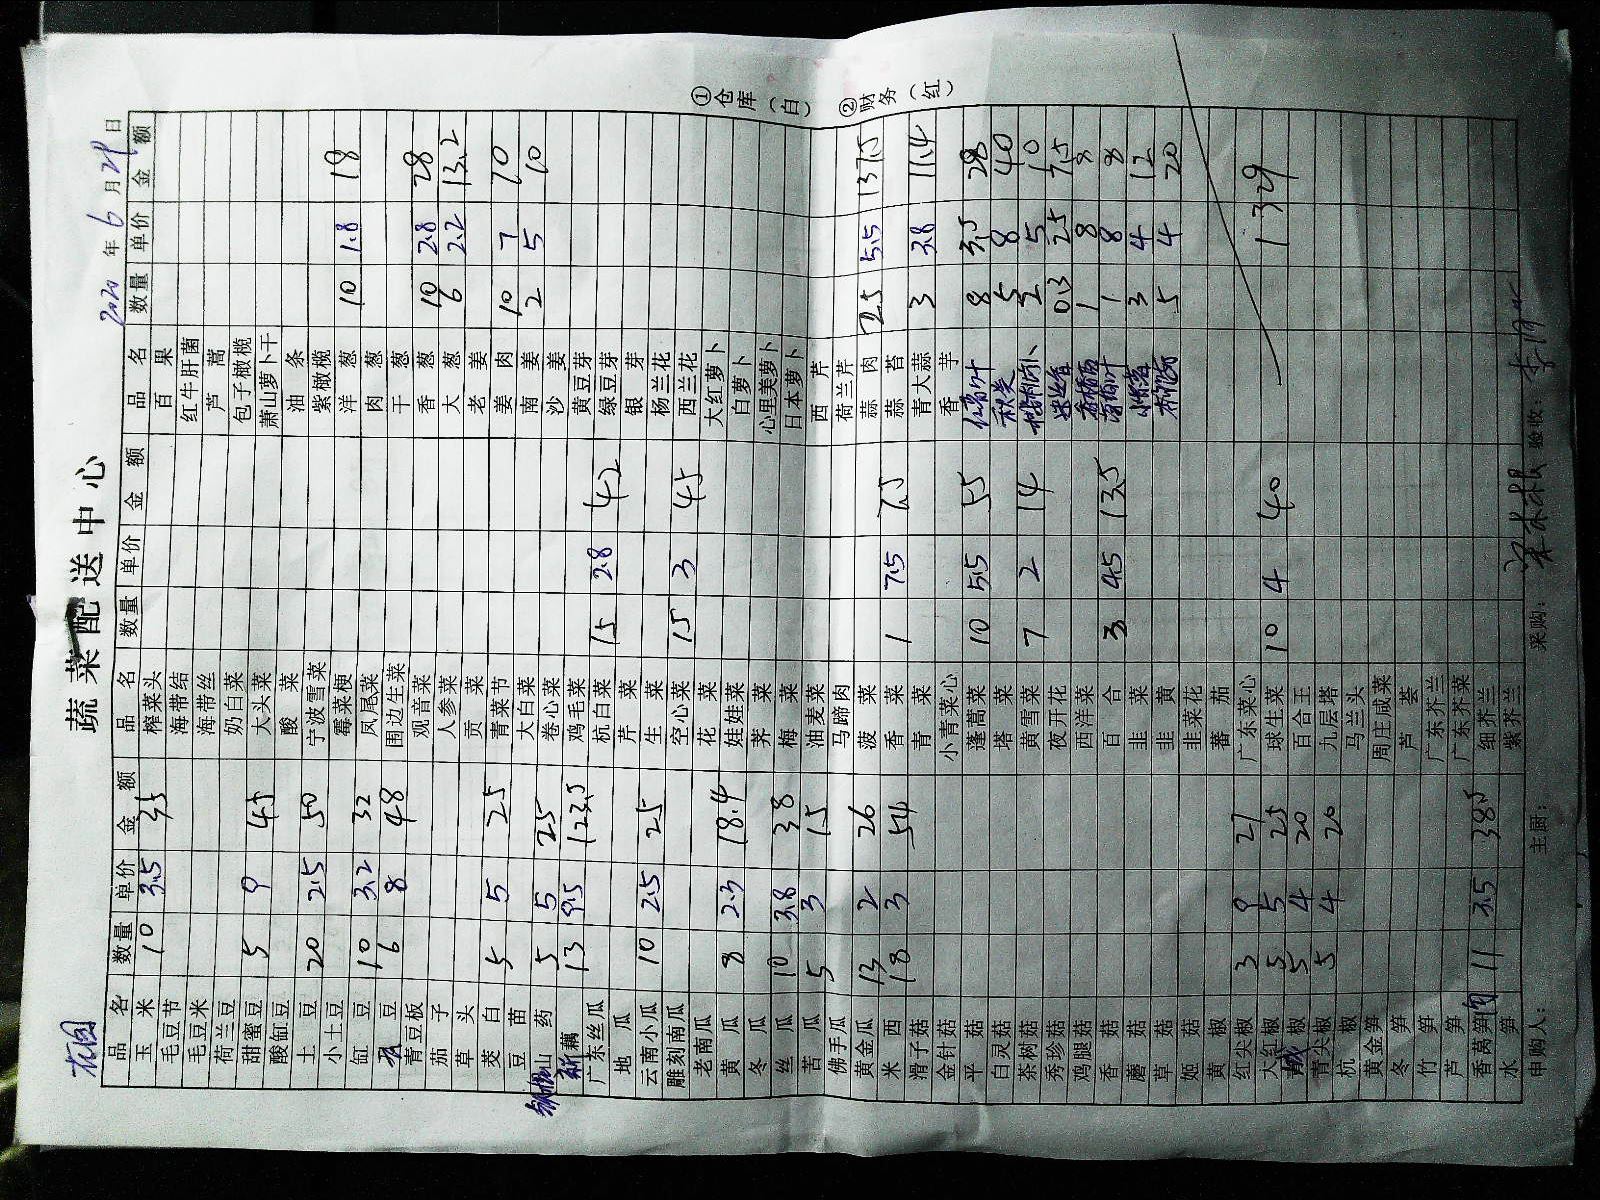 蔬菜配送中心
2020年6月29日
品名 数量 单价 金额 品名 数量 单价 金额 品名 数量 单价 金额
玉米 10 3.5 35 榨菜头 百果
毛豆节 海带结 红牛肝菌
毛豆米 海带丝 芦蒿
荷兰豆 奶白菜 包子橄榄
甜蜜豆 5 9 45 大头菜 萧山萝卜干
酸缸豆 酸菜 油条
土豆 20 2.5 50 宁波雪菜 紫橄榄
小土豆 霉菜梗 洋葱 10 1.8 18
缸豆 10 3.2 32 凤尾菜 肉葱
豆 6 8 48 围边生菜 干葱
青豆板 观音菜 香葱 10 2.8 28
茄子 人参菜 大葱 6 2.2 13.2
草头 贡菜 老姜
茭白 5 5 25 青菜节 姜肉 10 7 70
豆苗 大白菜 南姜 2 5 10
山药 5 5 25 卷心菜 沙姜
新藕 13 9.5 123.5 鸡毛菜 黄豆芽
广东丝瓜 杭白菜 15 2.8 42 绿豆芽
地瓜 芹菜 银芽
云南小瓜 10 2.5 25 生菜 杨兰花
雕刻南瓜 空心菜 15 3 45 西兰花
老南瓜 花菜 大红萝卜
黄瓜 8 2.3 18.4 娃娃菜 白萝卜
冬瓜 荠菜 心里美萝卜
丝瓜 10 3.8 38 梅菜 日本萝卜
苦瓜 5 3 15 油麦菜 西芹
佛手瓜 马蹄肉 荷兰芹
黄金瓜 13 2 26 菠菜 蒜肉 25 5.5 137.5
米西 18 3 54 香菜 1 7.5 7.5 蒜苔
滑子菇 青菜 青大蒜 3 3.8 11.4
金针菇 小青菜心 香芋
平菇 蓬蒿菜 10 5.5 55 8 3.5 28
白灵菇 塔菜 秋葵 5 8 40
茶树菇 黄雪菜 7 2 14 2 5 10
秀珍菇 夜开花 0.3 25 7.5
鸡腿菇 西洋菜 1 8 8
香菇 百合 3 4.5 13.5 1 8 8
蘑菇 韭菜 3 4 12
草菇 韭黄 5 4 20
姬菇 韭菜花
黄椒 蕃茄
红尖椒 3 9 27 广东菜心
大红椒 5 5 25 球生菜 10 4 40 1329
椒 5 4 20 百合王
青尖椒 5 4 20 九层塔
杭椒 马兰头
黄金笋 周庄咸菜
冬笋 芦荟
竹笋 广东芥兰
芦笋 广东芥菜
香莴笋肉 11 3.5 38.5 细芥兰
水笋 紫芥兰
申购人： 主厨： 采购： 验收：
①仓库（白） ②财务（红）